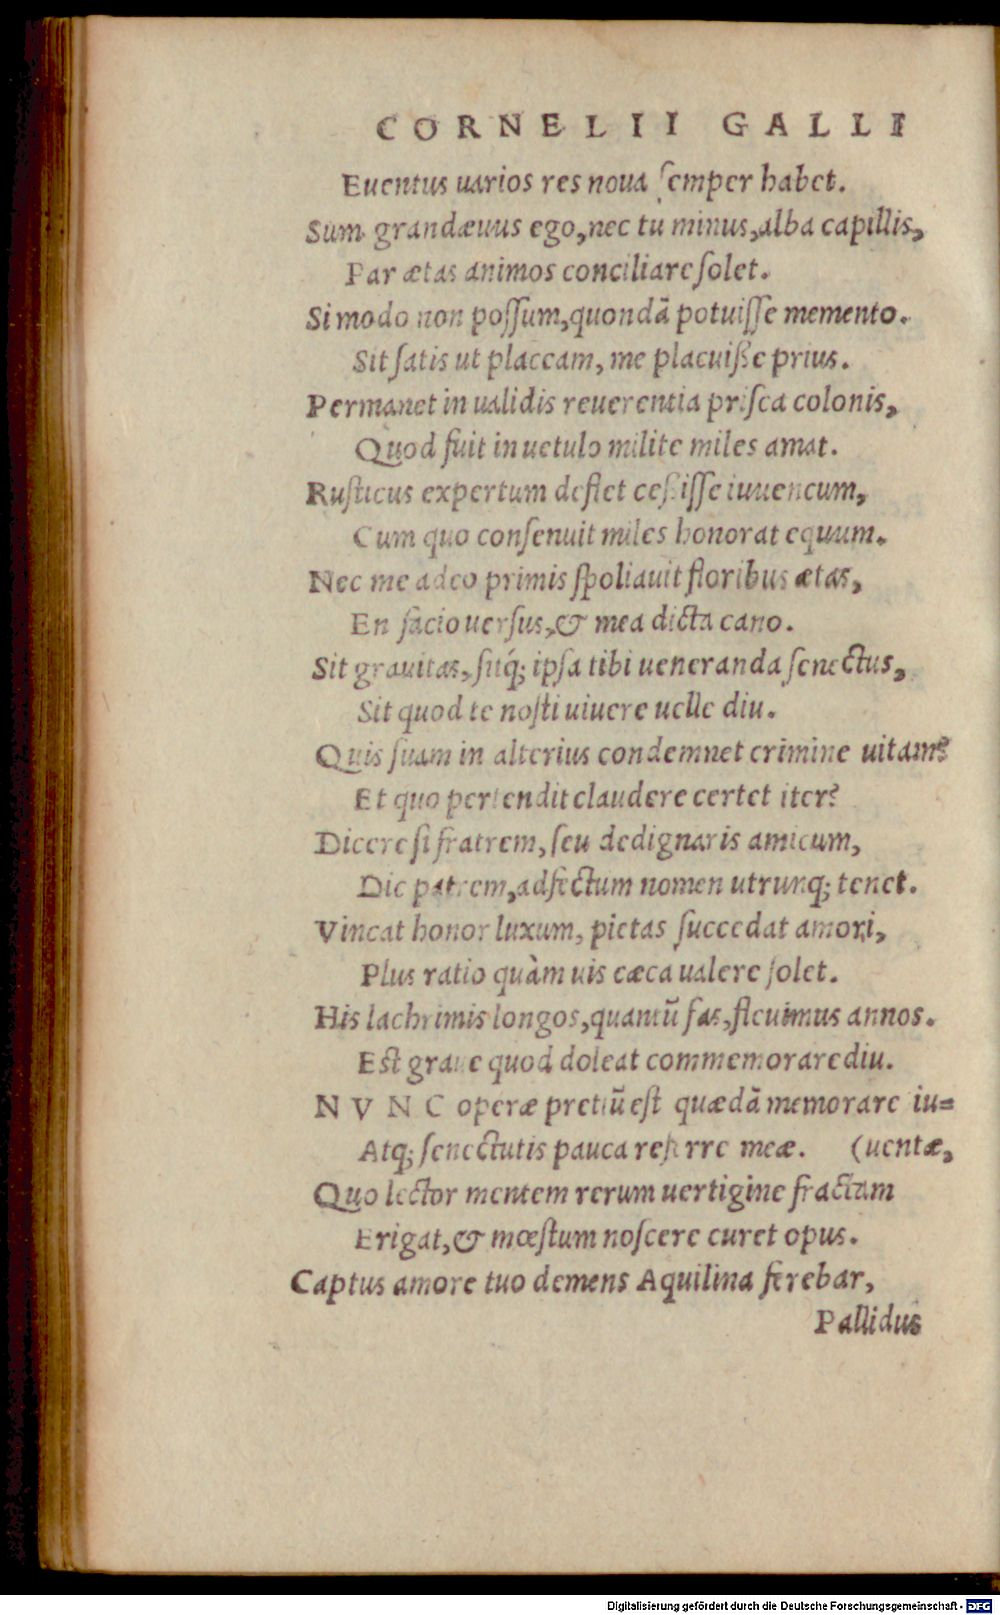 CORNELII GALLI
Euentus uarios res noua ſemper habet.
Sum grandæuus ego, nec tu minus, alba capillis,
Par ætas animos conciliare ſolet.
Si modo non poſſum, quondã potuiſſe memento.
Sit ſatis ut placeam, me placuiße prius.
Permanet in ualidis reuerentia priſca colonis,
Quod fuit in uetulo milite miles amat.
Ruſticus expertum deflet ceßiſſe iuuencum,
Cum quo conſenuit miles honorat equum.
Nec me adeo primis ſpoliauit floribus ætas,
En facio uerſus, & mea dicta cano.
Sit grauitas, ſitq́; ipſa tibi ueneranda ſenectus,
Sit quod te noſti uiuere uelle diu.
Quis ſuam in alterius condemnet crimine uitam?
Et quo pertendit claudere certet iter?
Dicere ſi fratrem, ſeu dedignaris amicum,
Dic patrem, adfectum nomen utrunq; tenet.
Vincat honor luxum, pietas ſuccedat amori,
Plus ratio quàm uis cæca ualere ſolet.
His lachrimis longos, quantũ fas, fleuimus annos.
Eſt graue quod doleat commemorare diu.
NVNC operæ pretiũ eſt quædã memorare iu=
Atq; ſenectutis pauca referre meæ. (uentæ,
Quo lector mentem rerum uertigine fractam
Erigat, & mœſtum noſcere curet opus.
Captus amore tuo demens Aquilina ferebar,
Pallidus
Digitalisierung gefördert durch die Deutsche Forschungsgemeinschaft - DFG